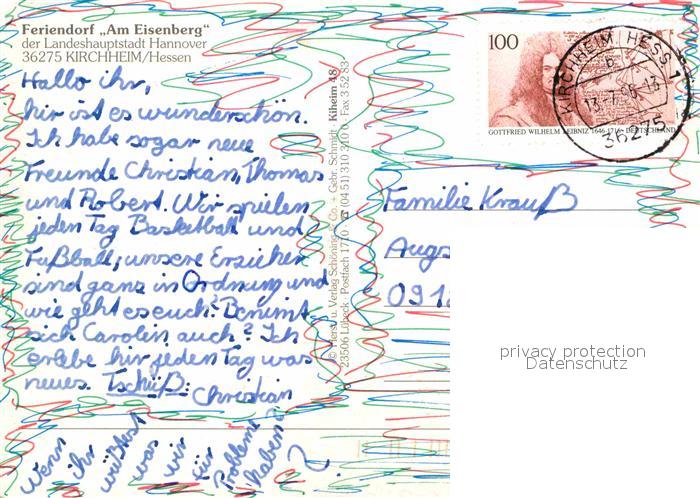 Feriendorf „Am Eisenberg“
der Landeshauptstadt Hannover
36275 KIRCHHEIM/Hessen
Hallo ihr,
hir ist es wunderschön.
Ich habe sogar neue
Freunde Christian, Thomas
und Robert. Wir spielen
jeden Tag Basketball und
Fußball; unsere Erzieher
sind ganz in Ordnung und
wie geht es euch? Benimt
sich Carolin auch? Ich
erlebe hir jeden Tag was
neues. Tschüß: Christian
Wenn
ihr
wüßtest
was
wir
für
Probleme
haben
?
© Herst. u. Verlag Schöning & Co. + Gebr. Schmidt · Kiheim 48
23506 Lübeck · Postfach 1710 · ☎ (04 51) 310 310 · Fax 3 52 83
100
GOTTFRIED WILHELM LEIBNIZ 1646-1716 · DEUTSCHLAND
KIRCHHEIM, HESS 1
b
36275
Familie Krauß
Augs
091
privacy protection
Datenschutz